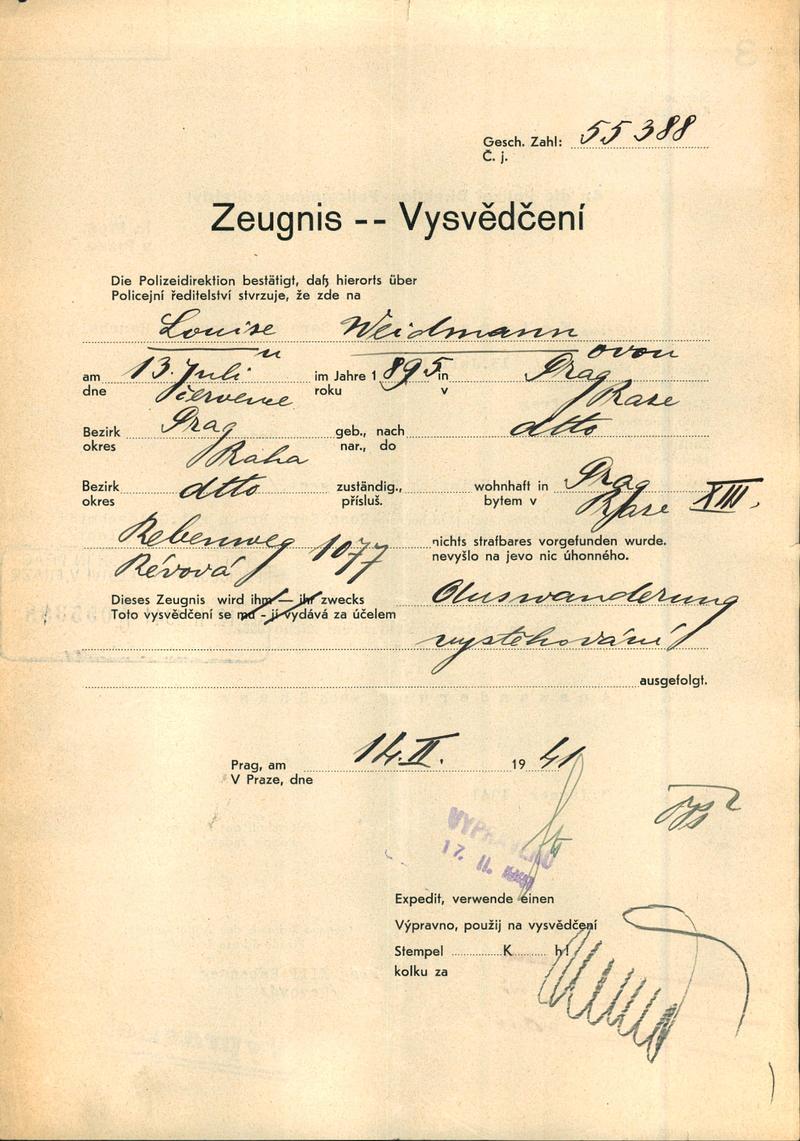 Gesch. Zahl: 55388
Č. j.
Zeugnis -- Vysvědčení
Die Polizeidirektion bestätigt, daß hierorts über
Policejní ředitelství stvrzuje, že zde na
Louise Weidmann
u ovou
am 13. Juli im Jahre 1895 in Prag
dne července roku v Praze
Bezirk Prag geb., nach dtto
okres Praha nar., do
Bezirk dtto zuständig., wohnhaft in Prag XIII.
okres přísluš. bytem v Praze
Rebenweg 1077 nichts strafbares vorgefunden wurde.
Révová nevyšlo na jevo nic úhonného.
Dieses Zeugnis wird ihm — ihr zwecks Auswanderung
Toto vysvědčení se mu - jí vydává za účelem
vystěhování
ausgefolgt.
Prag, am 14. II. 1941
V Praze, dne
VYPRAVENO
17. II. 1941
Expedit, verwende einen
Výpravno, použij na vysvědčení
Stempel K h!
kolku za